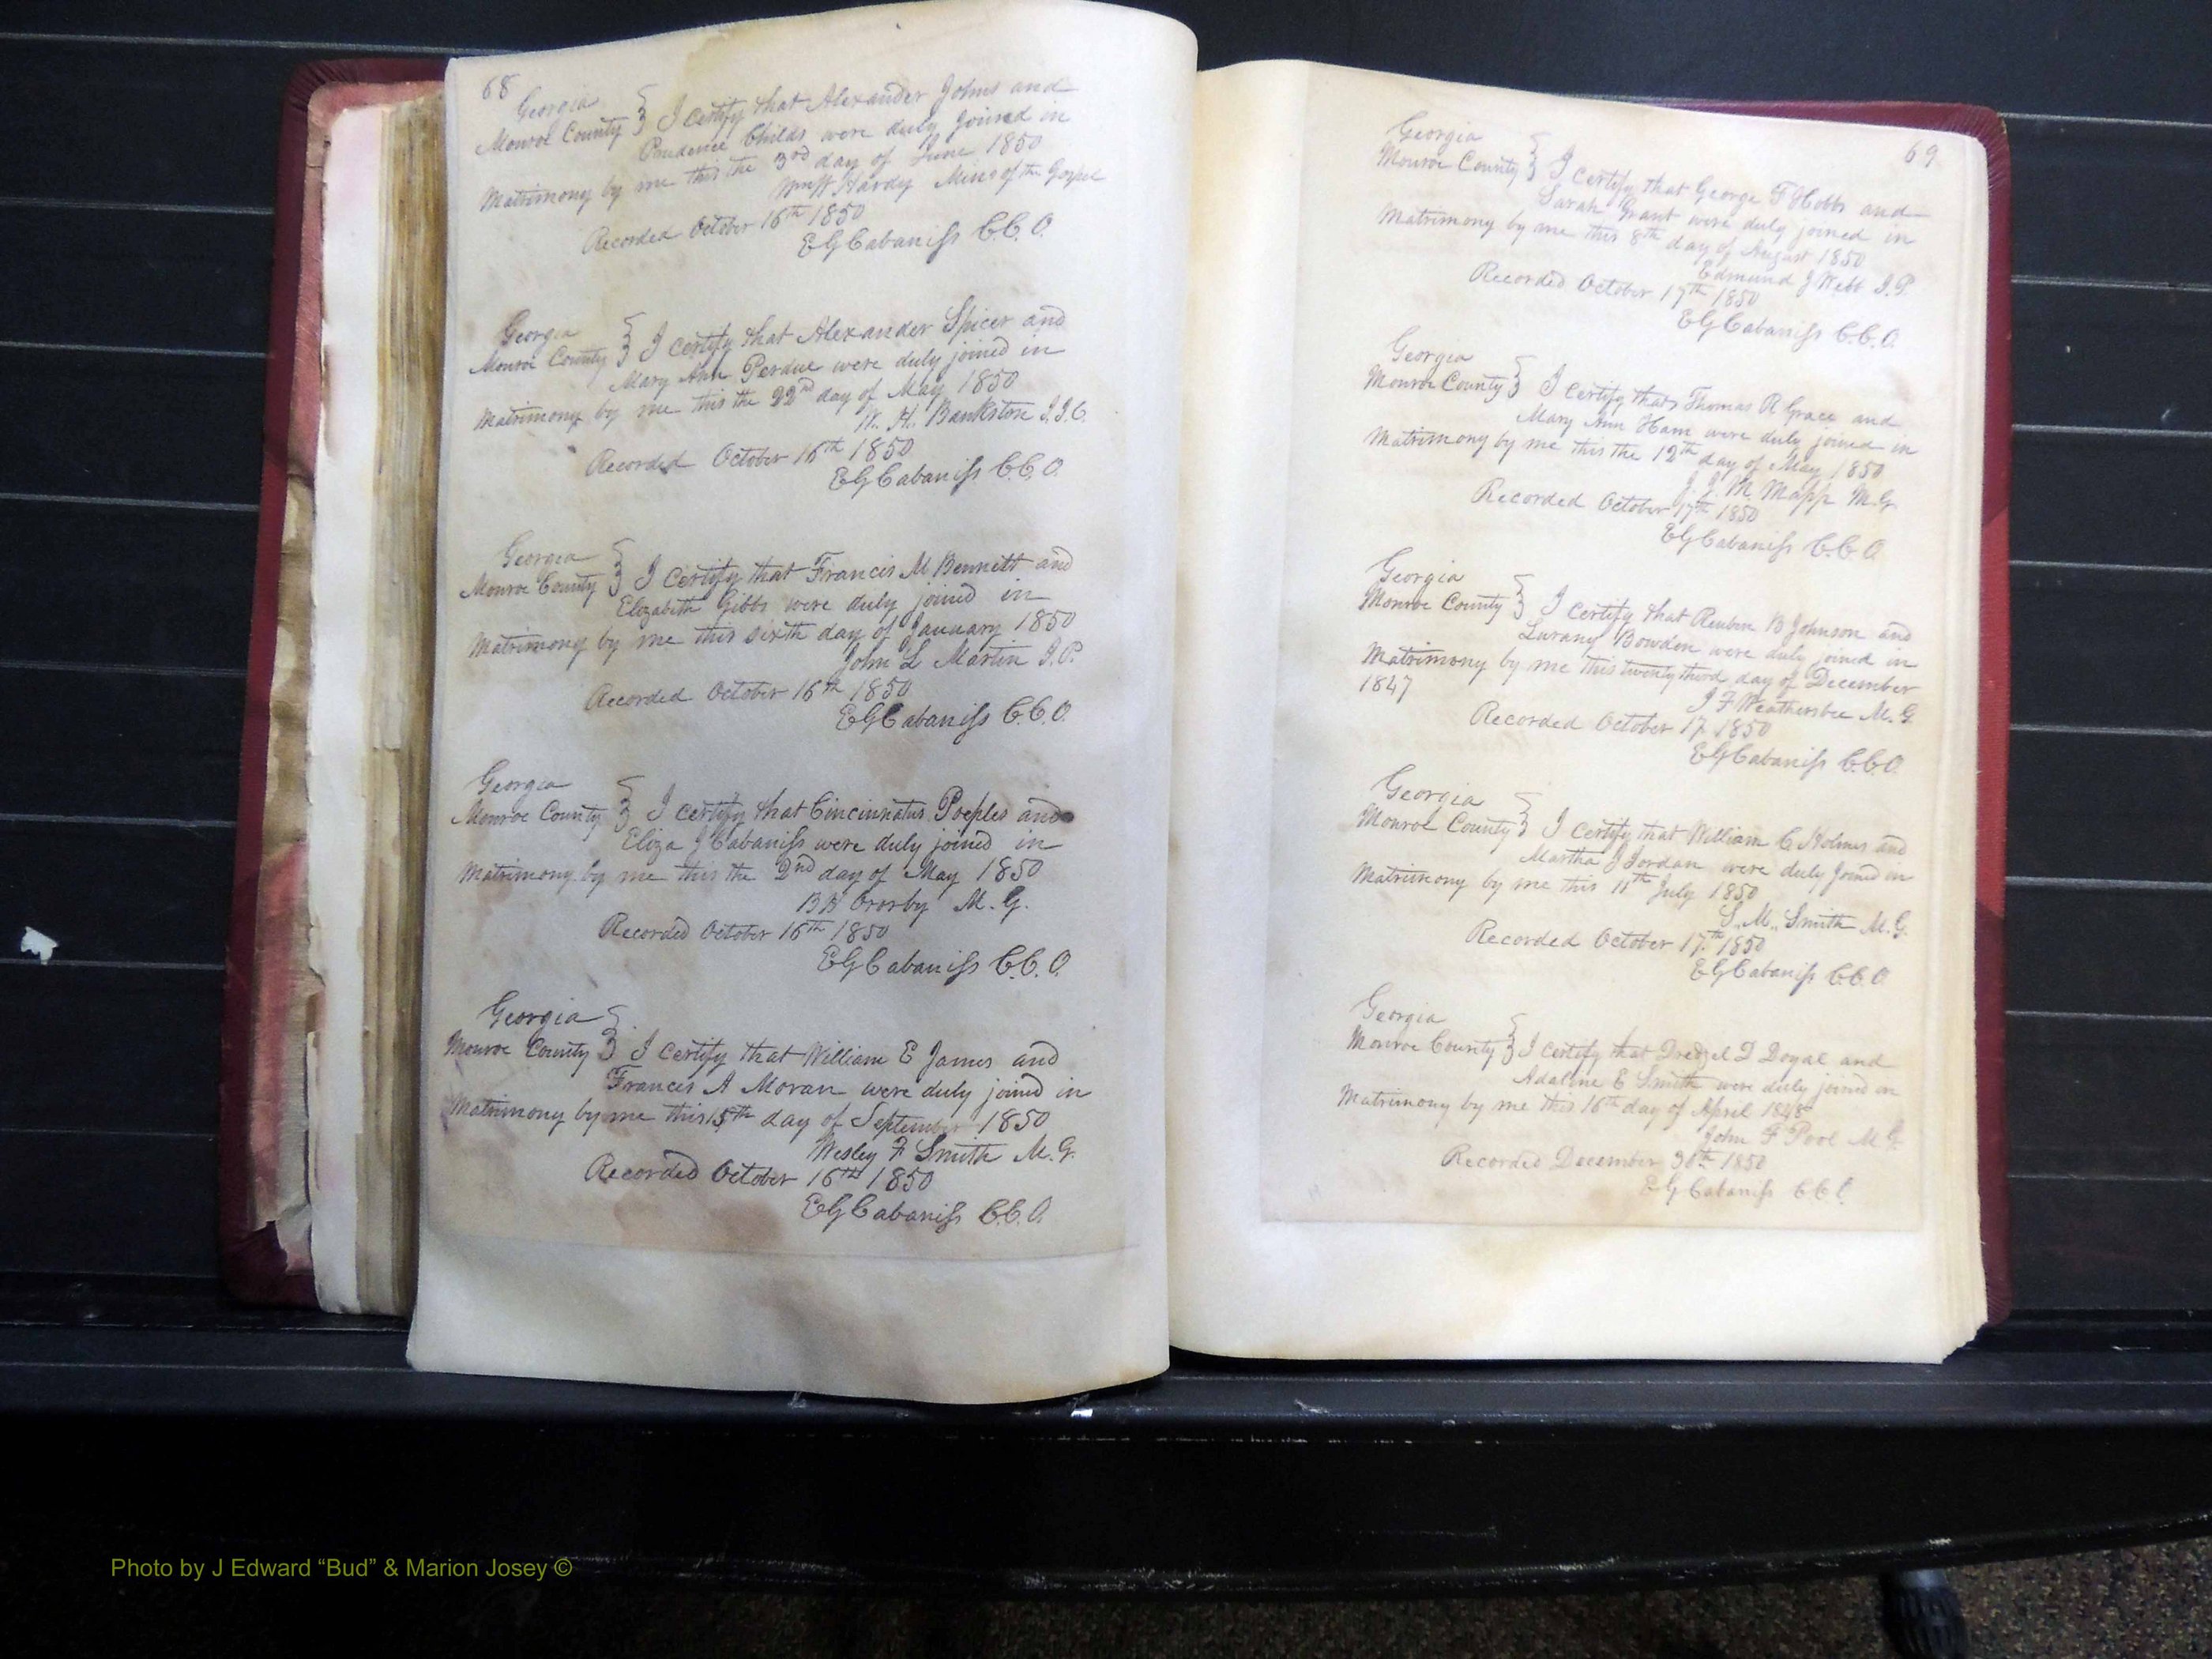 68
Georgia
Monroe County } I certify that Alexander Johns and
Prudence Childs were duly joined in
Matrimony by me this the 3rd day of June 1850
Hardy Mins of the Gospel
Recorded October 16th 1850
EGCabaniss C.C.O.
Georgia
Monroe County } I certify that Alexander Spicer and
Mary Ann Perdue were duly joined in
Matrimony by me this the 22nd day of May 1850
W. H. Bankston J.I.C.
Recorded October 16th 1850
EGCabaniss C.C.O.
Georgia
Monroe County } I certify that Francis M Bennett and
Elizabeth Gibbs were duly joined in
Matrimony by me this sixth day of January 1850
John L Martin J.P.
Recorded October 16th 1850
EGCabaniss C.C.O.
Georgia
Monroe County } I certify that Cincinnatus Peeples and
Eliza J Cabaniss were duly joined in
Matrimony by me this the 2nd day of May 1850
M.G.
Recorded October 16th 1850
EGCabaniss C.C.O.
Georgia
Monroe County } I certify that William E James and
Francis A Moran were duly joined in
Matrimony by me this 15th day of September 1850
Wesley F Smith M.G.
Recorded October 16th 1850
EGCabaniss C.C.O.
69
Georgia
Monroe County } I certify that George F Hobbs and
Sarah Grant were duly joined in
Matrimony by me this 8th day of August 1850
Edmund J Webb J.P.
Recorded October 17th 1850
EGCabaniss C.C.O.
Georgia
Monroe County } I certify that Thomas R Grace and
Mary Ann Ham were duly joined in
Matrimony by me this the 12th day of May 1850
J. J. M. Mapp M.G.
Recorded October 17th 1850
EGCabaniss C.C.O.
Georgia
Monroe County } I certify that Reuben B Johnson and
Lurany Bowden were duly joined in
Matrimony by me this twenty third day of December
1847
J F Weathersbee M.G.
Recorded October 17 1850
EGCabaniss C.C.O.
Georgia
Monroe County } I certify that William C Holmes and
Martha J Jordan were duly joined in
Matrimony by me this 11th July 1850
S. M. Smith M.G.
Recorded October 17th 1850
EGCabaniss C.C.O.
Georgia
Monroe County } I certify that D Doyal and
Adaline E Smith were duly joined in
Matrimony by me this 16th day of April 1848
John F Pool M G
Recorded December 30th 1850
EGCabaniss C.C.O.
Photo by J Edward “Bud” & Marion Josey ©